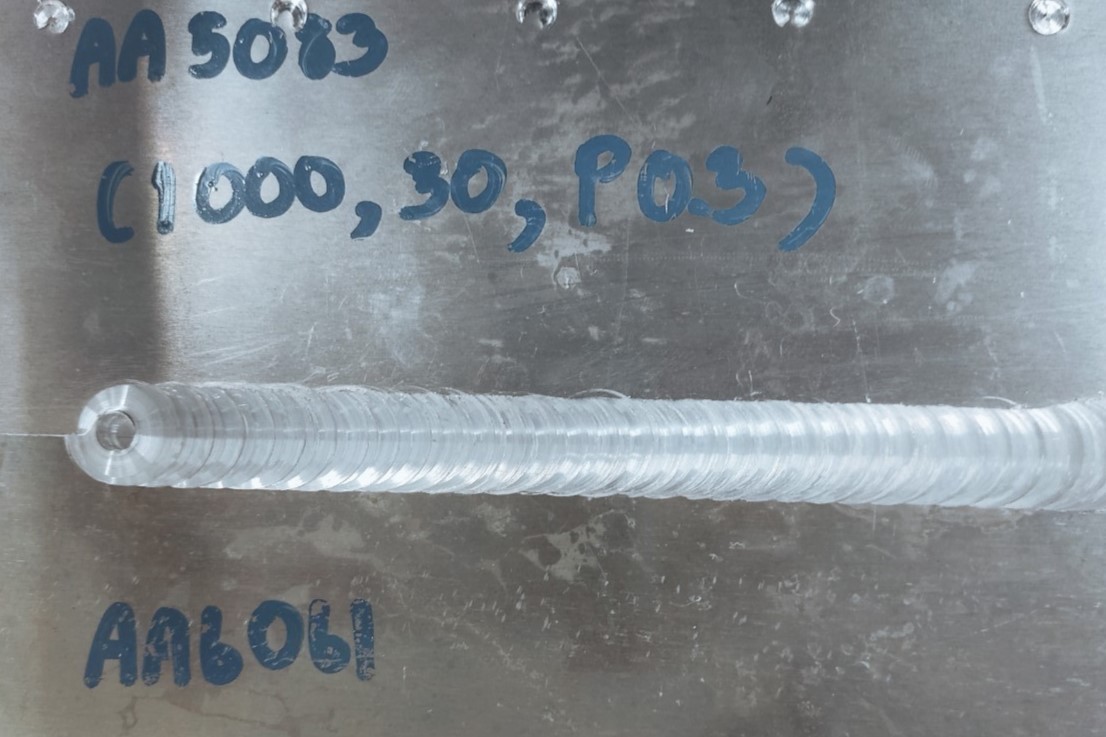 AA 5083
(1000, 30, P0.3)
AA6061